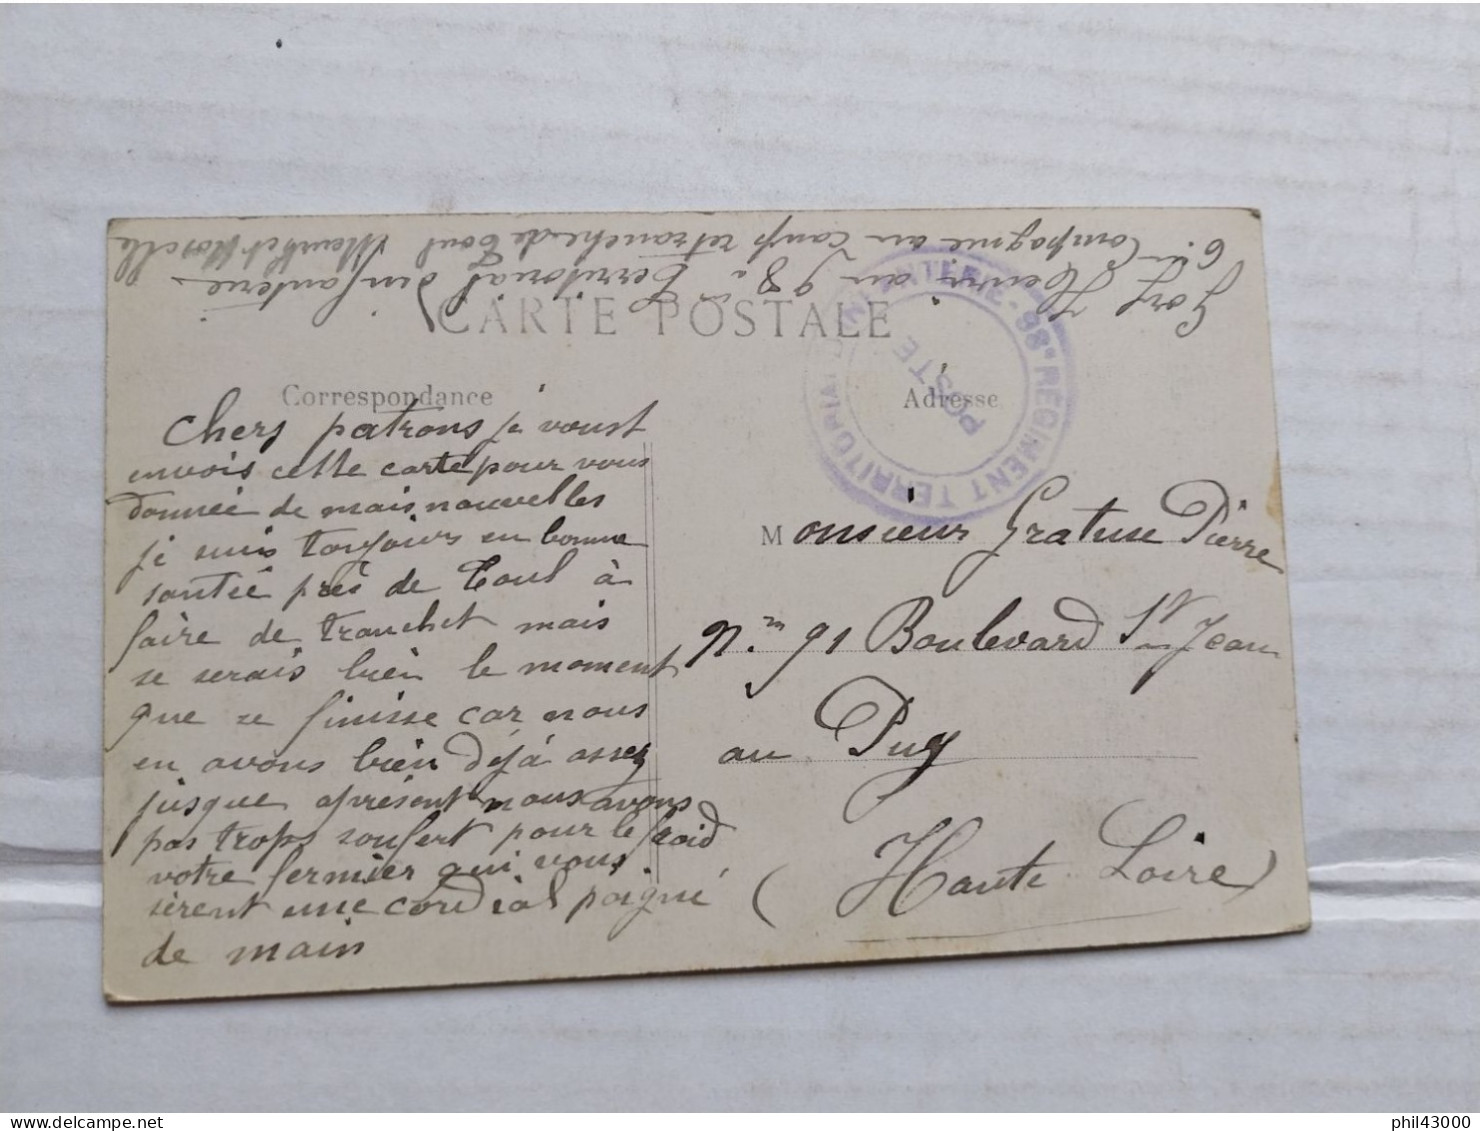 Henri au 98 Territorial d'infanterie
6 Compagnie au camp retranche de Toul Meurthet Moselle
CARTE POSTALE
Correspondance
Adresse
98e REGIMENT TERRITORIAL D'INFANTERIE
POSTE
Chers patrons je voust
envois cette carte pour vous
donnée de mais nouvelles
je suis toujours en bonne
santée près de Toul à
faire de tranchet mais
se serais bien le moment
que se finisse car nous
en avons bien déjà assez
jusque apresent nous avons
pas trops soufert pour le froid
votre fermier qui vous
serent une cordial poigné
de main
Monsieur Gratuse Pierre
n. 91 Boulevard St Jean
au Puy
(Haute Loire)
phil43000